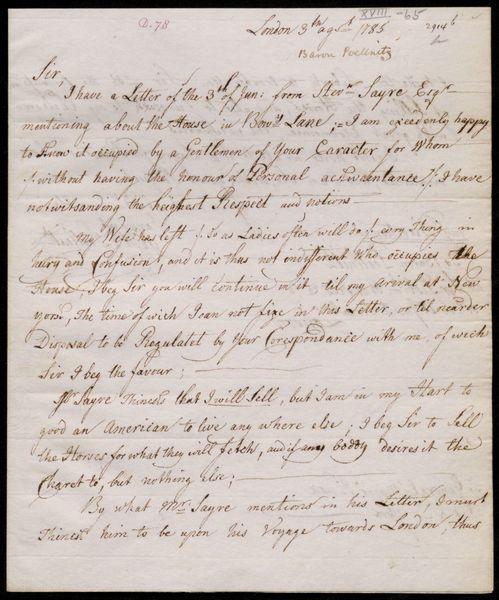 D.78
XVIII-65
2914 b
London 3th agst 1785
Baron Poellnitz
Sir
I have a Letter of the 3th of Jun: from Stevn Sayre Esqr
mentioning about the House in Bowry Lane, I am exceedenly happy
to Know it occupied by a Gentlemen of Your Caracter for Whom
/: without having the honour of Personal acwaentance :/ I have
notwitsanding the heighest Respect and notions
My Wife has left /: so as Ladies often will do :/ every Thing in
hury and Confusion, and it is thus not indifferent Who occupies the
House, I beg Sir you will continue in it til my arival at New
york, The time of wich I can not fixe in this Letter, or til nearder
Disposal to be Regulatet by Your Corespondance with me, of wich
Sir I beg the favour;
Mr Sayre Thinest that I will sell, but I am in my Hart to
good an American to live any where else; I beg Sir to Sell
the Horses for what they will fetch, and if any boddy desires it the
Charet to, but nothing else;
By what Mr Sayre mentions in his Letter, I must
Thinest him to be upon his Voyage towards London, thus